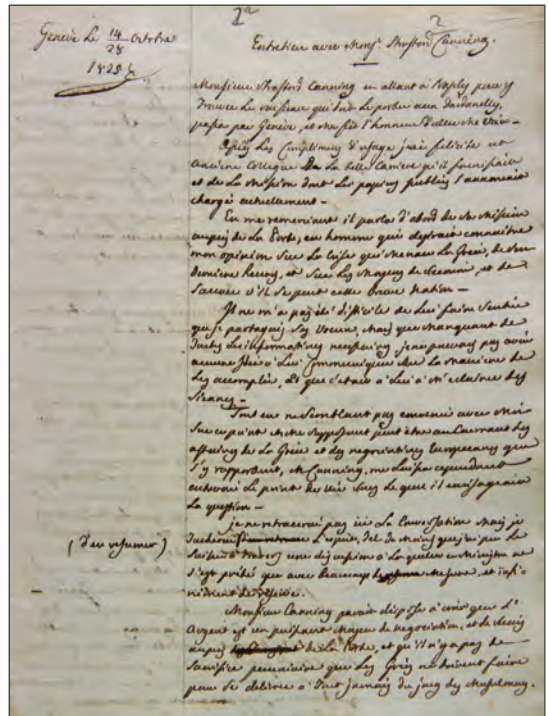 1ª
2
Genève le 14/28 Octobre
1825
Entretien avec Monsr. Strafford Canning.
Monsieur Strafford Canning en allant à Naples pour y
trouver le vaisseau qui doit le porter aux Dardanelles,
passa par Genève, et me fit l'honneur de me voir –
Après les Complimens d'usage j'ai felicité cet
ancien Collegue de la belle Carriere qu'il fournissait
et de la Mission dont les papiers publics l'annonçait
chargé actuellement –
En me remerciant il parla d'abord de sa Mission
auprès de la Porte, en homme qui desirait connaitre
mon opinion sur la Crise qui menace la Grèce, de son
derniere heure, et sur les Moyens de secourir, et de
sauver s'il se peut cette brave Nation –
Il ne m'a pas été difficile de lui faire sentir
que je partageais ses voeux, mais que manquant de
toutes les informations necessaires, je ne pouvais pas avoir
aucune idée à lui Communiquer sur la Maniere de
les accomplir, et que c'etait à lui à m'eclairer des
siennes –
Tout en ne semblant pas convenir avec moi
sur ce point et me supposant peut être au Courrant des
affaires de la Grèce et des negociations Européennes que
s'y rapportent, Mr Canning, me laissa cependant
entrevoir le point de vüe sous le quel il envisageait
la question –
je ne retracerai pas ici la Conversation mais je
(d'en resumer)
tacherai l'esprit, tel du moins que j'ai pu le
saisir à travers une discussion à la quelle ce Ministre ne
s'est prêté que avec beaucoup de mesure, et infi-
niment de reserve.
Monsieur Canning parait disposé à croire que l'
Argent est un puissant moyen de negociation, et de succès
auprès de la Porte, et qu'il n'y a pas de
sacrifice pecuniaire que les Grecs ne doivent faire
pour se delivrer à tout jamais du joug des Musulmans.